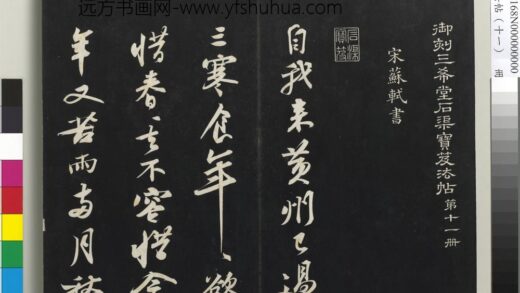 远方书画网-www.yfshuhua.com
御刻三希堂石渠寶笈法帖第十一冊
宋蘇軾書
石渠寶笈
自我来黄州已過
三寒食年〻欲
惜春〻不容惜今
年又苦雨兩月秋
168N000000000
帖（十一）